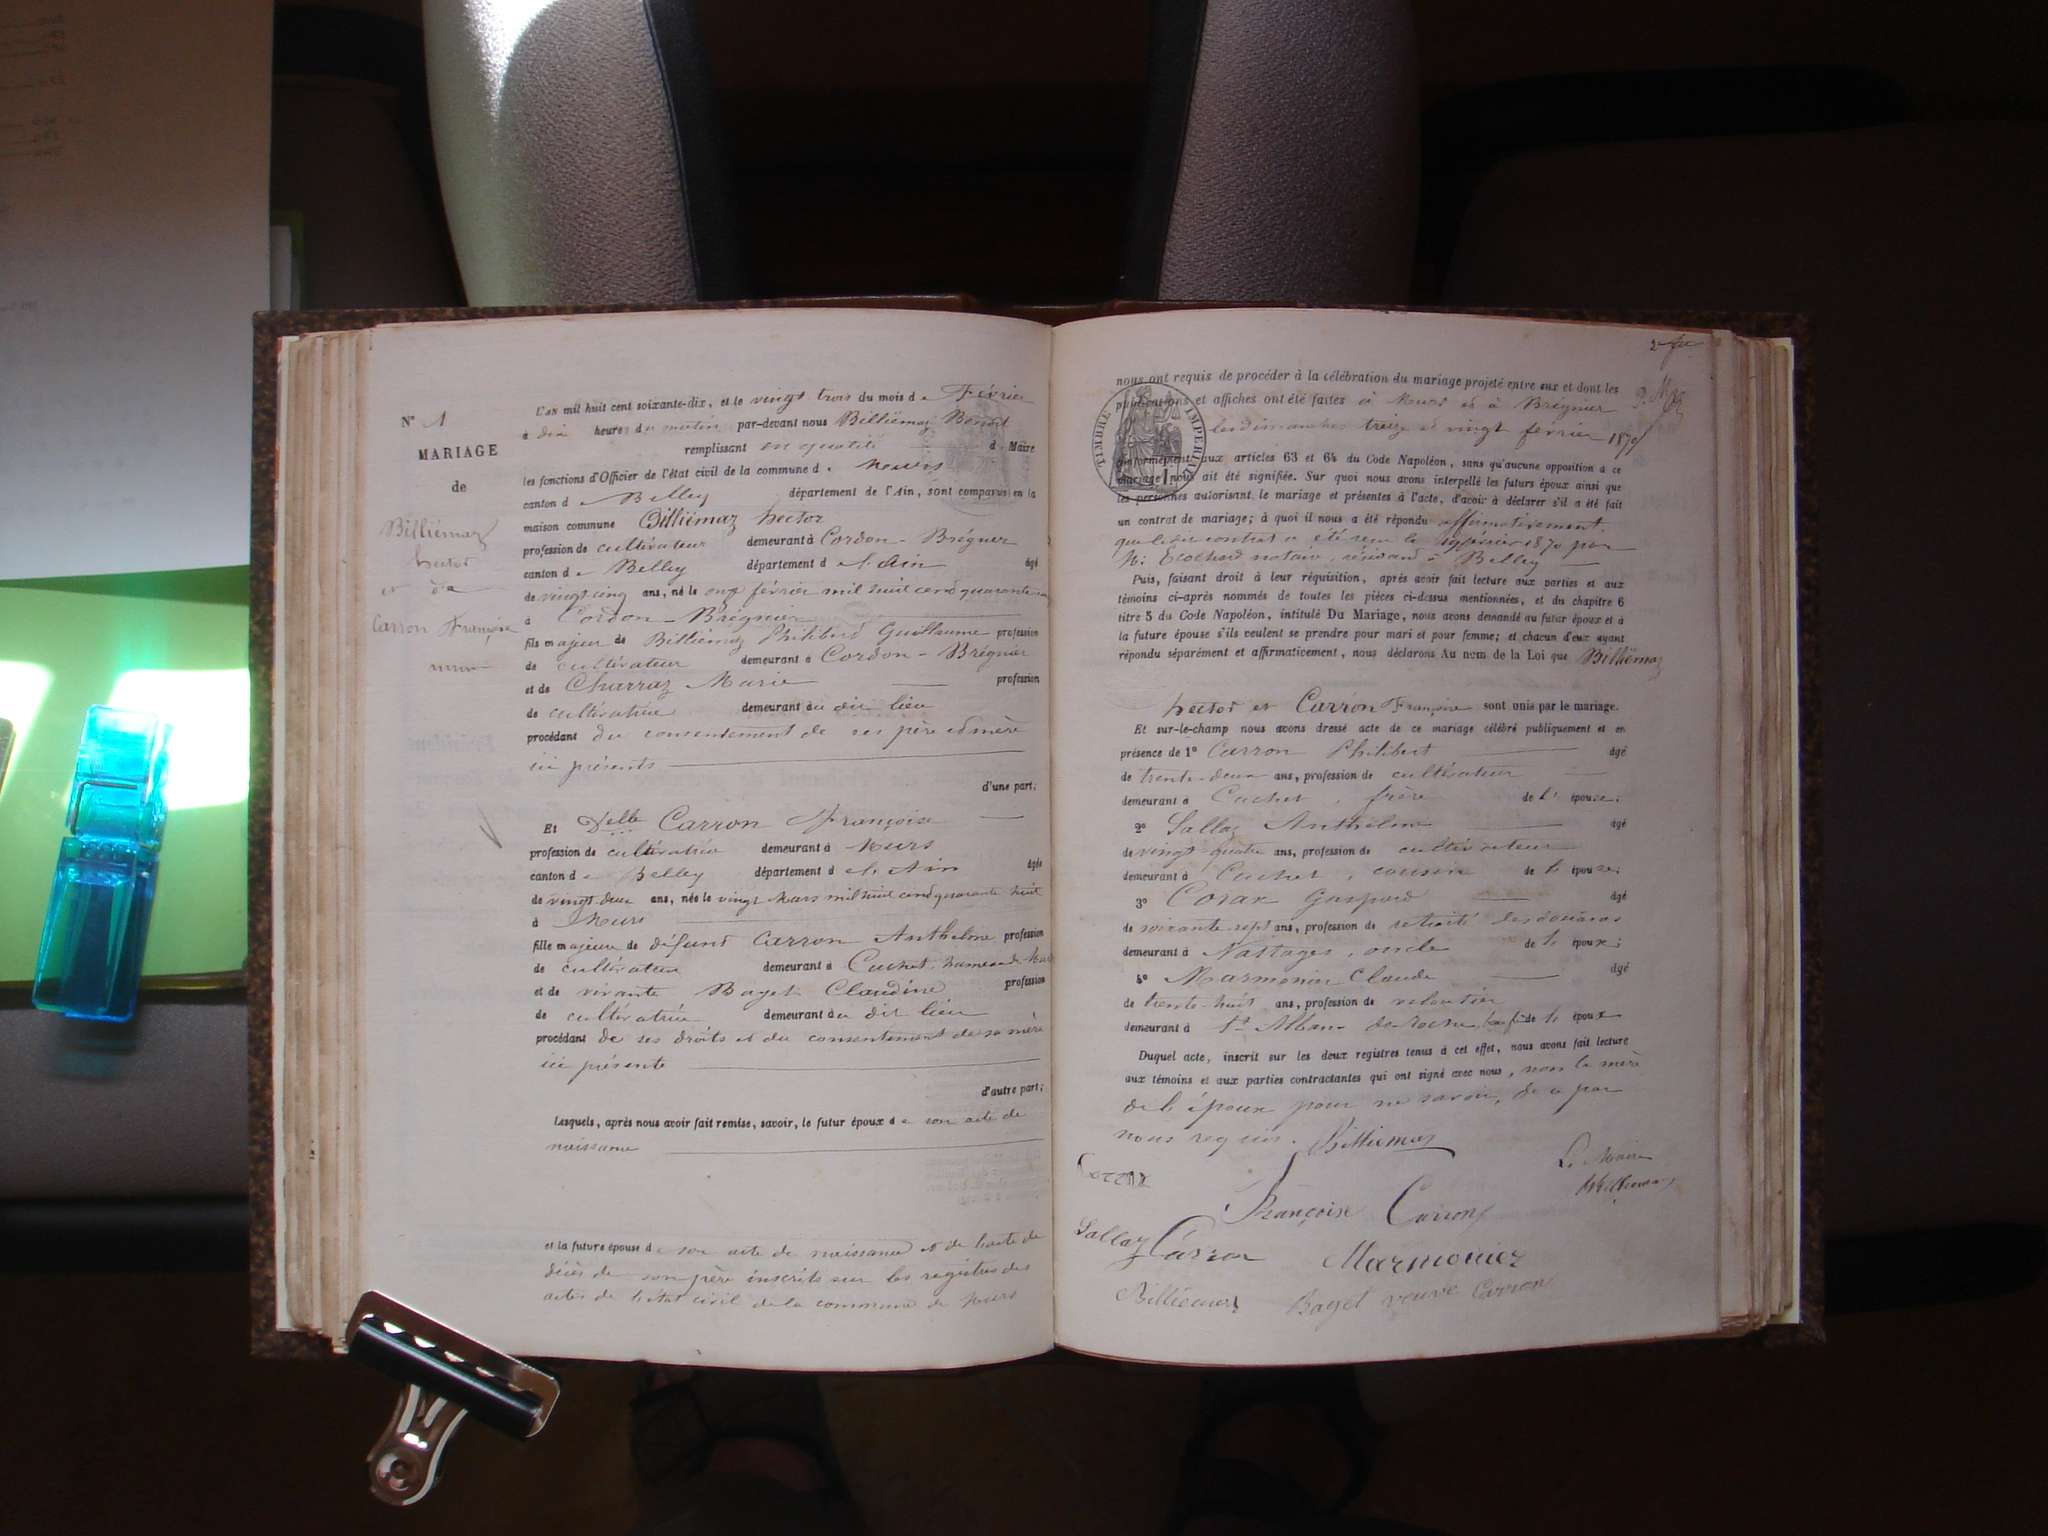 N° 1
MARIAGE
de
Billiémaz
hector
et de
Carron Françoise
L'an mil huit cent soixante-dix, et le vingt trois du mois de Février
à dix heures du matin par-devant nous Billiémaz Benoit
remplissant en qualité de Maire
les fonctions d'Officier de l'état civil de la commune de Meurs
canton de Belley département de l'Ain, sont comparus en la
maison commune Billiémaz hector
profession de cultivateur demeurant à Cordon-Brégnier
canton de Belley département de l'Ain âgé
de vingt cinq ans, né le onze février mil huit cent quarante
à Cordon-Brégnier
fils majeur de Billiémaz Philibert Guillaume profession
de cultivateur demeurant à Cordon-Brégnier
et de Charraz Marie profession
de cultivatrice demeurant au dit lieu
procédant du consentement de ses père et mère
ici présents
d'une part;
Et Delle Carron Françoise
profession de cultivatrice demeurant à Meurs
canton de Belley département de l'Ain âgée
de vingt deux ans, née le vingt Mars mil huit cent quarante huit
à Meurs
fille majeure de défunt Carron Anthelme profession
de cultivateur demeurant à Cuchet, hameau de
et de vivante Baget Claudine profession
de cultivatrice demeurant au dit lieu
procédant de ses droits et du consentement de sa mère
ici présente
d'autre part;
Lesquels, après nous avoir fait remise, savoir, le futur époux de son acte de
naissance
et la future épouse de son acte de naissance et de l'acte de
décès de son père inscrits sur les registres des
actes de l'état civil de la commune de Meurs
nous ont requis de procéder à la célébration du mariage projeté entre eux et dont les
publications et affiches ont été faites à Meurs et à Brégnier
les dimanches treize et vingt février 1870
TIMBRE IMPERIAL
conformément aux articles 63 et 64 du Code Napoléon, sans qu'aucune opposition à ce
mariage nous ait été signifiée. Sur quoi nous avons interpellé les futurs époux ainsi que
les personnes autorisant le mariage et présentes à l'acte, d'avoir à déclarer s'il a été fait
un contrat de mariage; à quoi il nous a été répondu affirmativement
que le dit contrat a été reçu le 1870 par
Me Ecochard notaire, résidant à Belley
Puis, faisant droit à leur réquisition, après avoir fait lecture aux parties et aux
témoins ci-après nommés de toutes les pièces ci-dessus mentionnées, et du chapitre 6
titre 5 du Code Napoléon, intitulé Du Mariage, nous avons demandé au futur époux et à
la future épouse s'ils veulent se prendre pour mari et pour femme; et chacun d'eux ayant
répondu séparément et affirmativement, nous déclarons Au nom de la Loi que Billiémaz
hector et Carron Françoise sont unis par le mariage.
Et sur-le-champ nous avons dressé acte de ce mariage célébré publiquement et en
présence de 1° Carron Philibert âgé
de trente-deux ans, profession de cultivateur
demeurant à Cuchet, frère de l' épouse;
2° Sallaz Anthelme âgé
de vingt-quatre ans, profession de cultivateur
demeurant à Cuchet, cousin de l' épouse;
3° Coraz Gaspard âgé
de soixante-sept ans, profession de retraité des douanes
demeurant à Nattages, oncle de l' époux;
4° Marmonier Claude âgé
de trente-huit ans, profession de veloutier
demeurant à St Alban-de-Roche de l' époux
Duquel acte, inscrit sur les deux registres tenus à cet effet, nous avons fait lecture
aux témoins et aux parties contractantes qui ont signé avec nous, non la mère
de l'époux pour ne savoir, de ce par
nous requis. Billiemaz
Le Maire
Coraz
Billiemaz
Françoise Carron
Sallaz Carron Marmonier
Billiemaz Baget veuve Carron